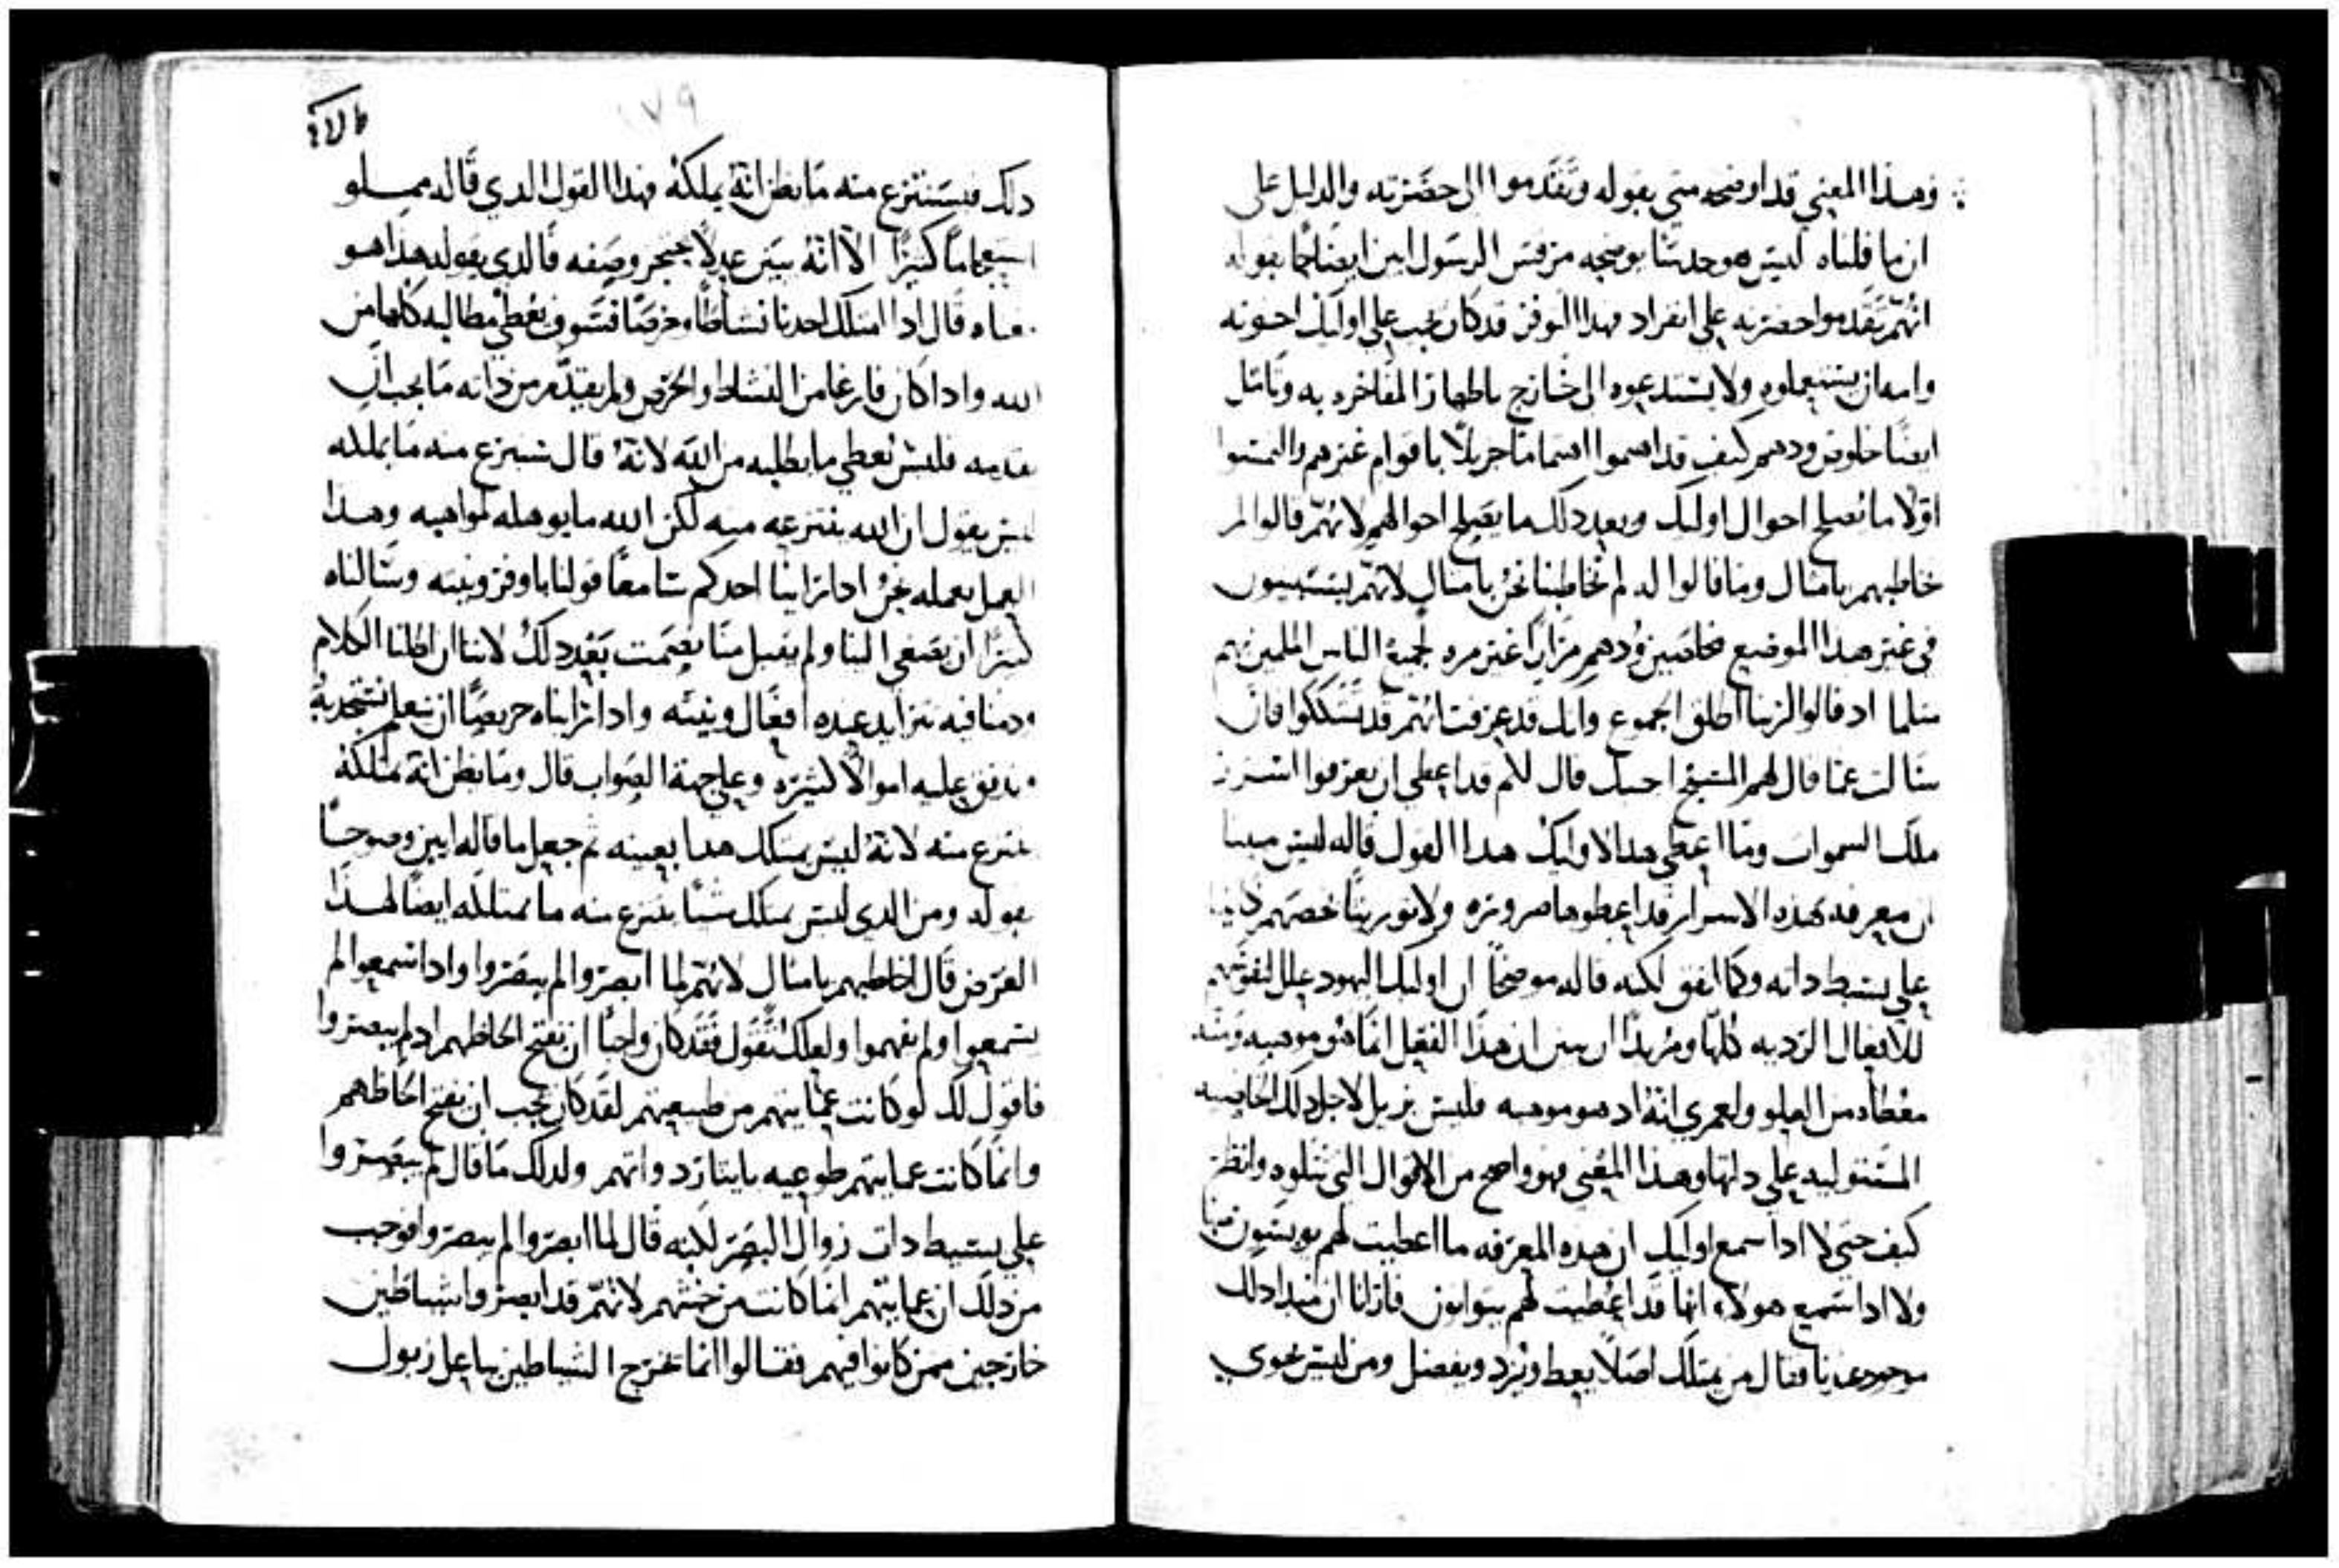 وهذا المعني قد اوضحه متي بقوله وتقدموا الي حضرته والدليل علي
ان ما قلناه ليس هو حدسنا يوضحه مرقس الرسول ابين ايضاحا بقوله
انهم تقدموا حضرته علي انفراد فهذا الوفر قد كان يجب علي اوليك اخوته
وامه ان يستعملوه ولا يستدعوه الي خارج باظهار المفاخره به وتامل
ايضا خلوص ودهم كيف قد اهتموا اهتماما جزيلا باقوام غيرهم والتمسوا
اولا ما تصلح احوال اوليك وبعد دلك ما يصلح احوالهم لانهم قالوا لم
خاطبهم بامثال وما قالوا له لم تخاطبنا نحن بامثال لانهم يستبينون
في غير هذا الموضع مخلصين ودهم مرارا غير مره لجمع الناس الملمين بهم
مثلما اد قالوا لربنا اطلق الجموع وانك قد عرفت انهم قد تشككوا فان
سالت عما قال لهم المسيح اجبتك قال لكم قد اعطي ان تعرفوا اسرار
ملك السموات وما اعطي هذا لاوليك هذا القول قاله ليس مبينا
ان معرفه هذه الاسرار قد اعطوها ضروره ولا نورينا خصهم
علي بسيط داته وكما اتفق لكنه قاله موضحا ان اوليك اليهود علل لنفوسهم
للافعال الرديه كلها ومريدا ان يبين ان هذا الفعل انما هو موهبه ومنه
معطاه من العلو ولعمري انه اد هو موهبه فليس نزيل لاجل دلك الخاصيه
المستوليه علي داتها وهذا المعني فهو واضح من الاقوال التي تتلوه وانظر
كيف حتي لا ادا سمع اوليك ان هذه المعرفه ما اعطيت لهم يويسون منها
ولا ادا سمع هولاء انها قد اعطيت لهم يتوانون فارانا ان مبدا دلك
موجود عندنا فقال من يمتلك اصلا يعط ويزد ويفضل ومن ليس يحوي
١٧٩
دلك فيستنزع منه ما يظن انه يملكه فهذا القول الدي قاله مملو
استعجاما كثيرا الا انه يبين عدلا يعجز وصفه فالدي يقوله هذا هو
معناه قال ادا امتلك احدنا نشاطا وحرصا فسوف يعطي مطالبه كلها من
الله وادا كان فارغا من النشاط والحرص ولم يقدم من داته ما يجب ان
يقدمه فليس يعطي ما يطلبه من الله لانه قال سينزع منه ما يملكه
ليس يقول ان الله ينتزعه منه لكن الله ما يوهله لمواهبه وهذا
العمل نعمله نحن ادا راينا احدكم سامعا قولنا باوفر ونيه وسالناه
كثيرا ان يصغي الينا ولم يقبل منا يصمت بعد دلك لاننا ان اطلنا الكلام
ودمنا فيه تتزايد عنده افعال ونيته وادا راينا حريصا ان يتعلم نستجدبه
وندفق عليه اموالا كثيره وعلي جهة الصواب قال وما يظن انه يمتلكه
ينتزع منه لانه ليس يمتلك هدا بعينه ثم جعل ما قاله ابين وضوحا
بقوله ومن الدي ليس يمتلك شيا ينتزع منه ما يمتلكه ايضا لهذا
الغرض قال اخاطبهم بامثال لانهم لما ابصروا لم يبصروا وادا سمعوا لم
يسمعوا ولم يفهموا ولعلك تقول فقد كان واجبا ان تفتح الحاظهم اد لم يبصروا
فاقول لك لو كانت عمايتهم من طبيعتهم لقد كان يجب ان تفتح الحاظهم
وانما كانت عمايتهم طوعيه بايثار دواتهم ولدلك ما قال لم يبصروا
علي بسيط دات زوال البصر لكنه قال لما ابصروا لم يبصروا فوجب
من دلك ان عمايتهم انما كانت من خبثهم لانهم قد ابصروا شياطين
خارجين ممن كانوا فيهم فقالوا انما تخرج الشياطين بباعل زبول